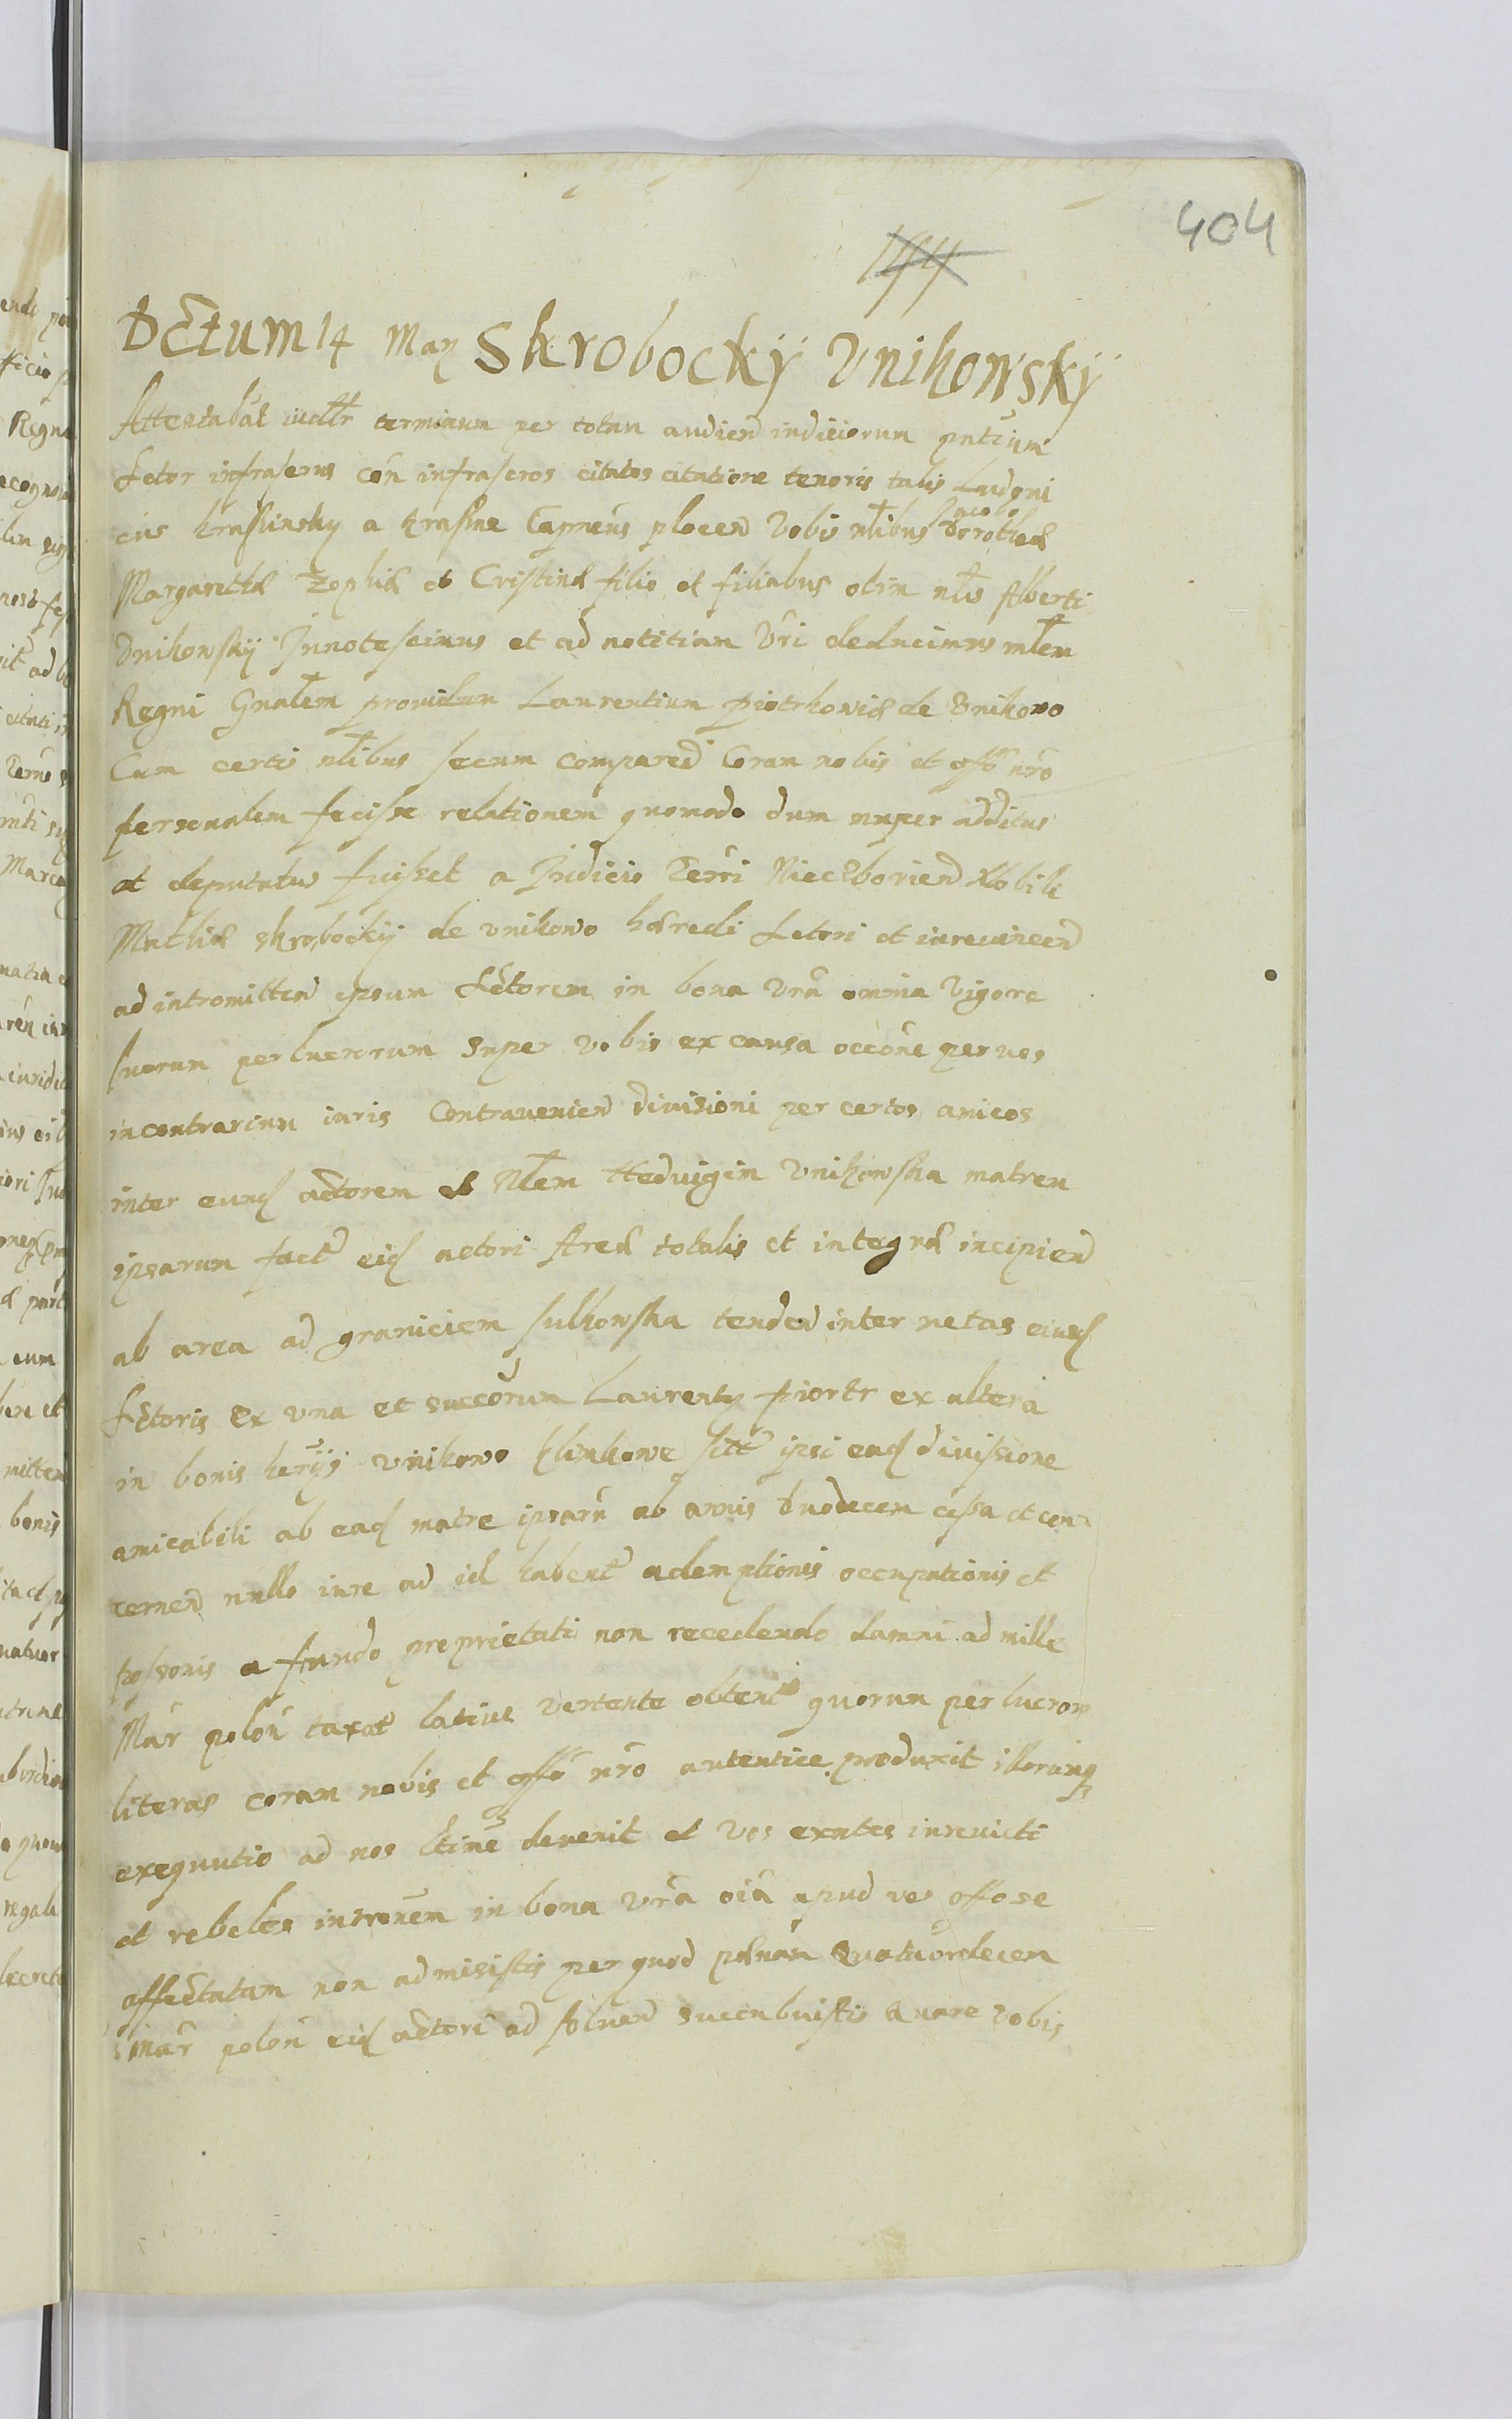 404
Dctum 14 May Skrobockÿ Vnikowskÿ
Attentabat iudltr terminum per totam audien iudiciorum pntium
Actor infrascrus con infrascros citatos citatione tenoris talis Ludoui
Jacobo
cus krasinsky a krasne Capneus plocen Vobis nlibus Dorotheæ
Margarethæ Zophiæ et Cristinæ filio et filiabus olim nlis Alberti
Vnikowskÿ Innotescimus et ad notitiam Vri deducimus mlem
Regni Gnalem prouidum Laurentium piotrkowicz de Vnikowo
Cum certis nlibus secum comparen Coram nobis et offo nro
personalem fecisse relationem quomodo dum nuper additus
et deputatus fuisset a Judicio Terri Niedzborien Nobili
Mathiæ skrobockÿ de vnikowo hæredi Actori et iureuincen
ad intromitten ipsum Actorem in bona vra omnia Vigore
suorum perlucrorum super vobis ex causa occone per uos
in contrarium iuris Contrauenien diuisioni per certos amicos
inter eund actorem et Nlem Heduigim Vnikowska matrem
ipsarum fact eid actori Areæ totalis et integræ incipien
ab area ad graniciem sulkowska tenden inter metas eiusd
Actoris ex vna et succorum Laurenty piortr ex altera
in bonis heriis vnikowo klimkowe sitt ipsi ead diuissione
amicabili ab ead matre ipsaru ab annis duodecem cessa et con
cernen nullo iure ad id habent ademptionis occupationis et
possonis a fundo proprietati non recedendo damni ad mille
Mar polon taxat latius vertente obtent quorum perlucror
literas coram nobis et offo nro autentice produxit illorumq
exequutio ad nos ltime deuenit et Vos exntes iureuicti
et rebeles intronem in bona vra oia apud vos offose
affectatam non admisistis per quod pænam Quatuordecem
Mar polon eid actori ad soluen succubuistis Quare vobis